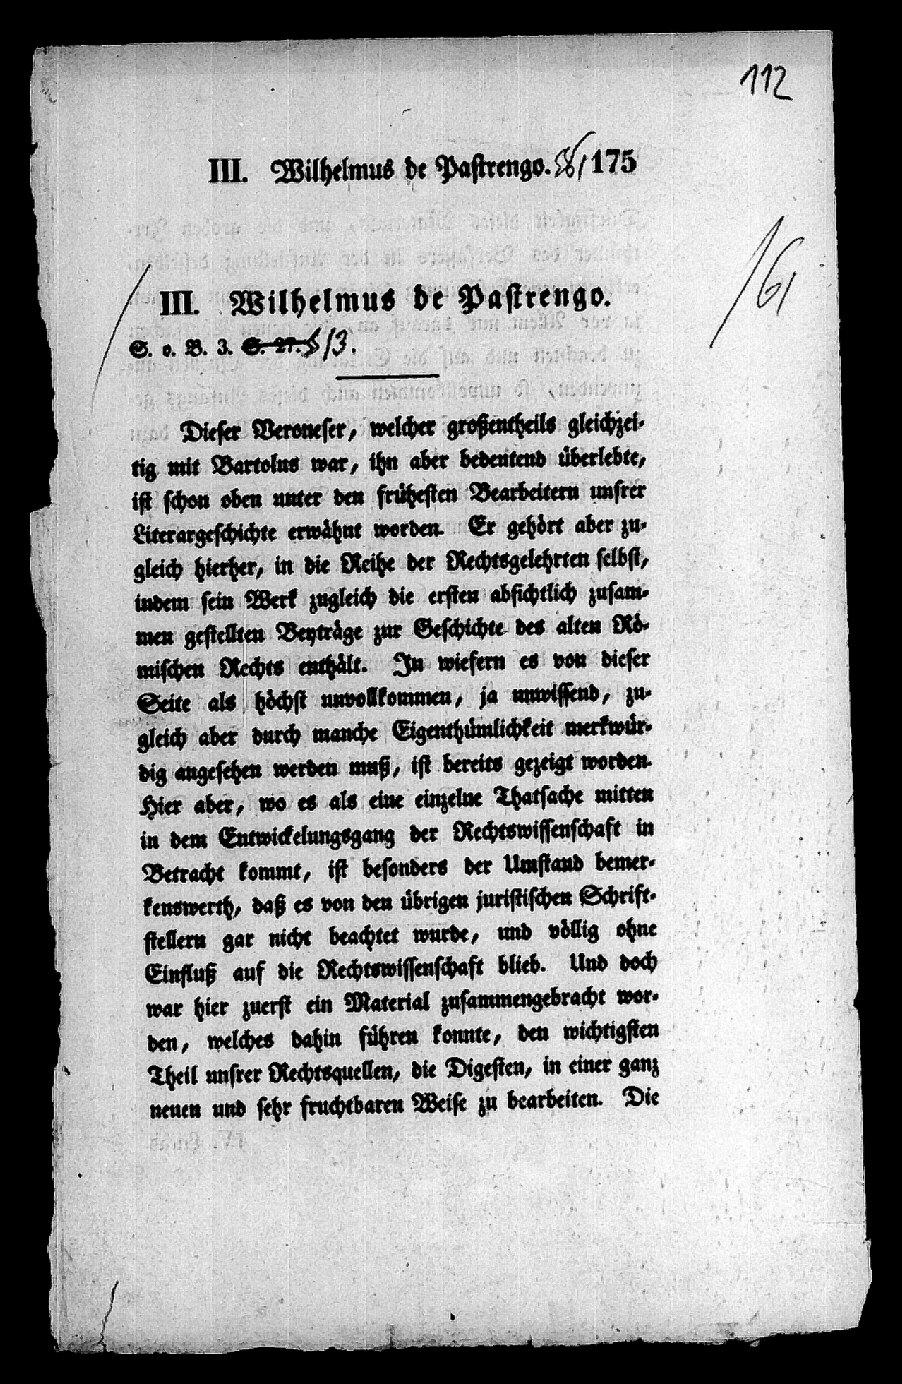 112
III. Wilhelmus de Pastrengo. 175
61
III. Wilhelmus de Pastrengo.
S. o. B. 3. S. 27. § 13.
Dieser Veroneser, welcher großentheils gleichzei-
tig mit Bartolus war, ihn aber bedeutend überlebte,
ist schon oben unter den frühesten Bearbeitern unsrer
Literargeschichte erwähnt worden. Er gehört aber zu-
gleich hierher, in die Reihe der Rechtsgelehrten selbst,
indem sein Werk zugleich die ersten absichtlich zusam-
men gestellten Beyträge zur Geschichte des alten Rö-
mischen Rechts enthält. In wiefern es von dieser
Seite als höchst unvollkommen, ja unwissend, zu-
gleich aber durch manche Eigenthümlichkeit merkwür-
dig angesehen werden muß, ist bereits gezeigt worden.
Hier aber, wo es als eine einzelne Thatsache mitten
in dem Entwickelungsgang der Rechtswissenschaft in
Betracht kommt, ist besonders der Umstand bemer-
kenswerth, daß es von den übrigen juristischen Schrift-
stellern gar nicht beachtet wurde, und völlig ohne
Einfluß auf die Rechtswissenschaft blieb. Und doch
war hier zuerst ein Material zusammengebracht wor-
den, welches dahin führen konnte, den wichtigsten
Theil unsrer Rechtsquellen, die Digesten, in einer ganz
neuen und sehr fruchtbaren Weise zu bearbeiten. Die